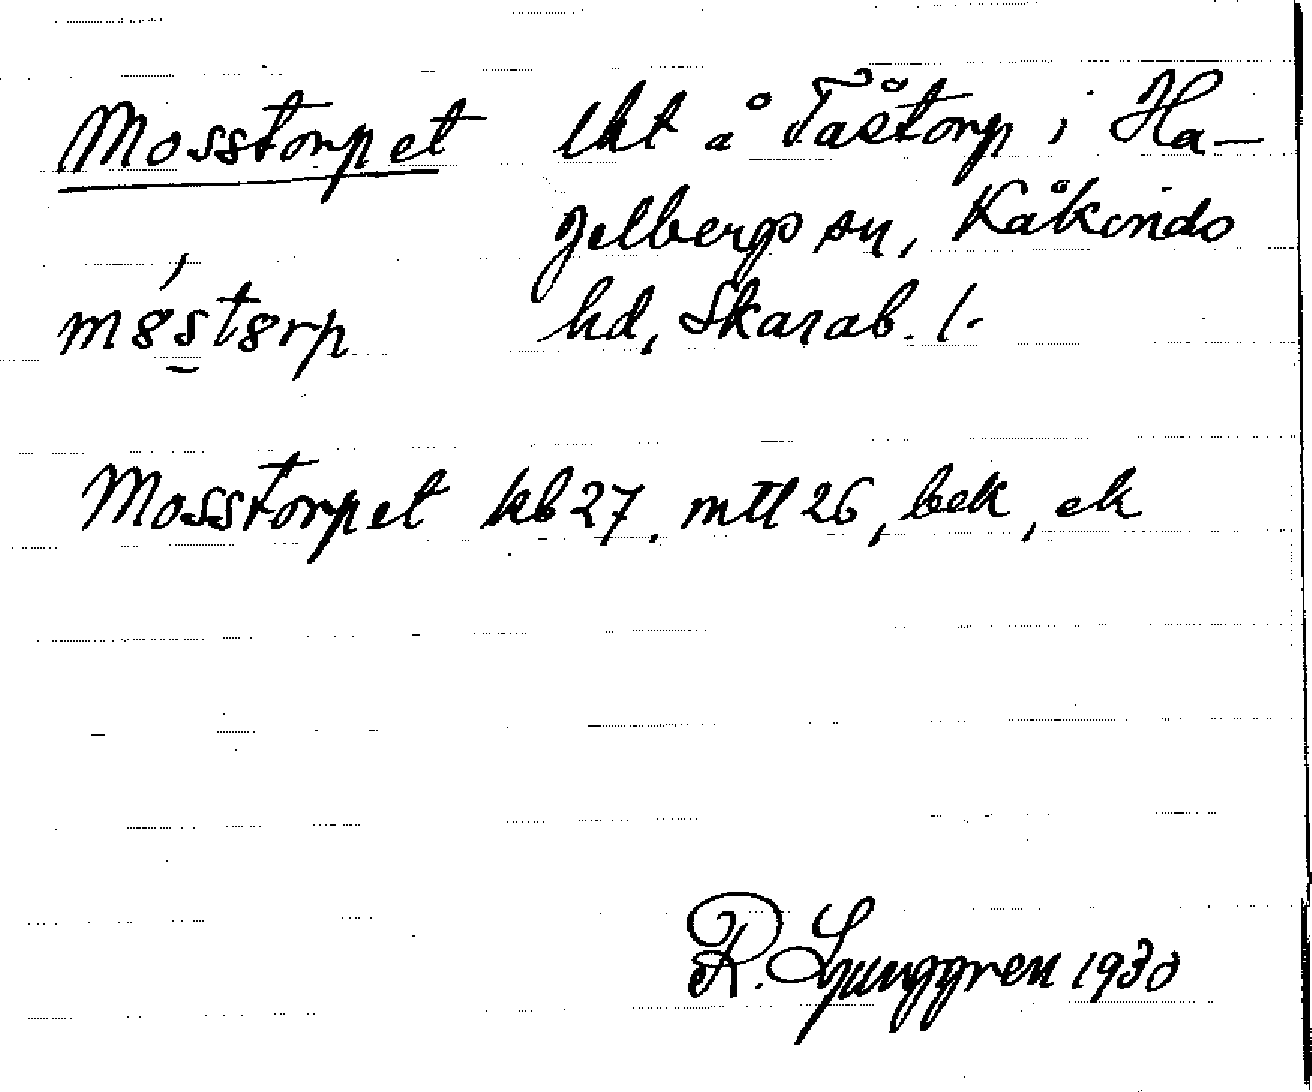 Mosstorpet lht å Tåstorp i Ha-
gelbergs sn, Kåkinds
hd, Skarab. l.
Mosstorpet kb 27, mtl 26, bek, ek
R. Ljunggren 1930